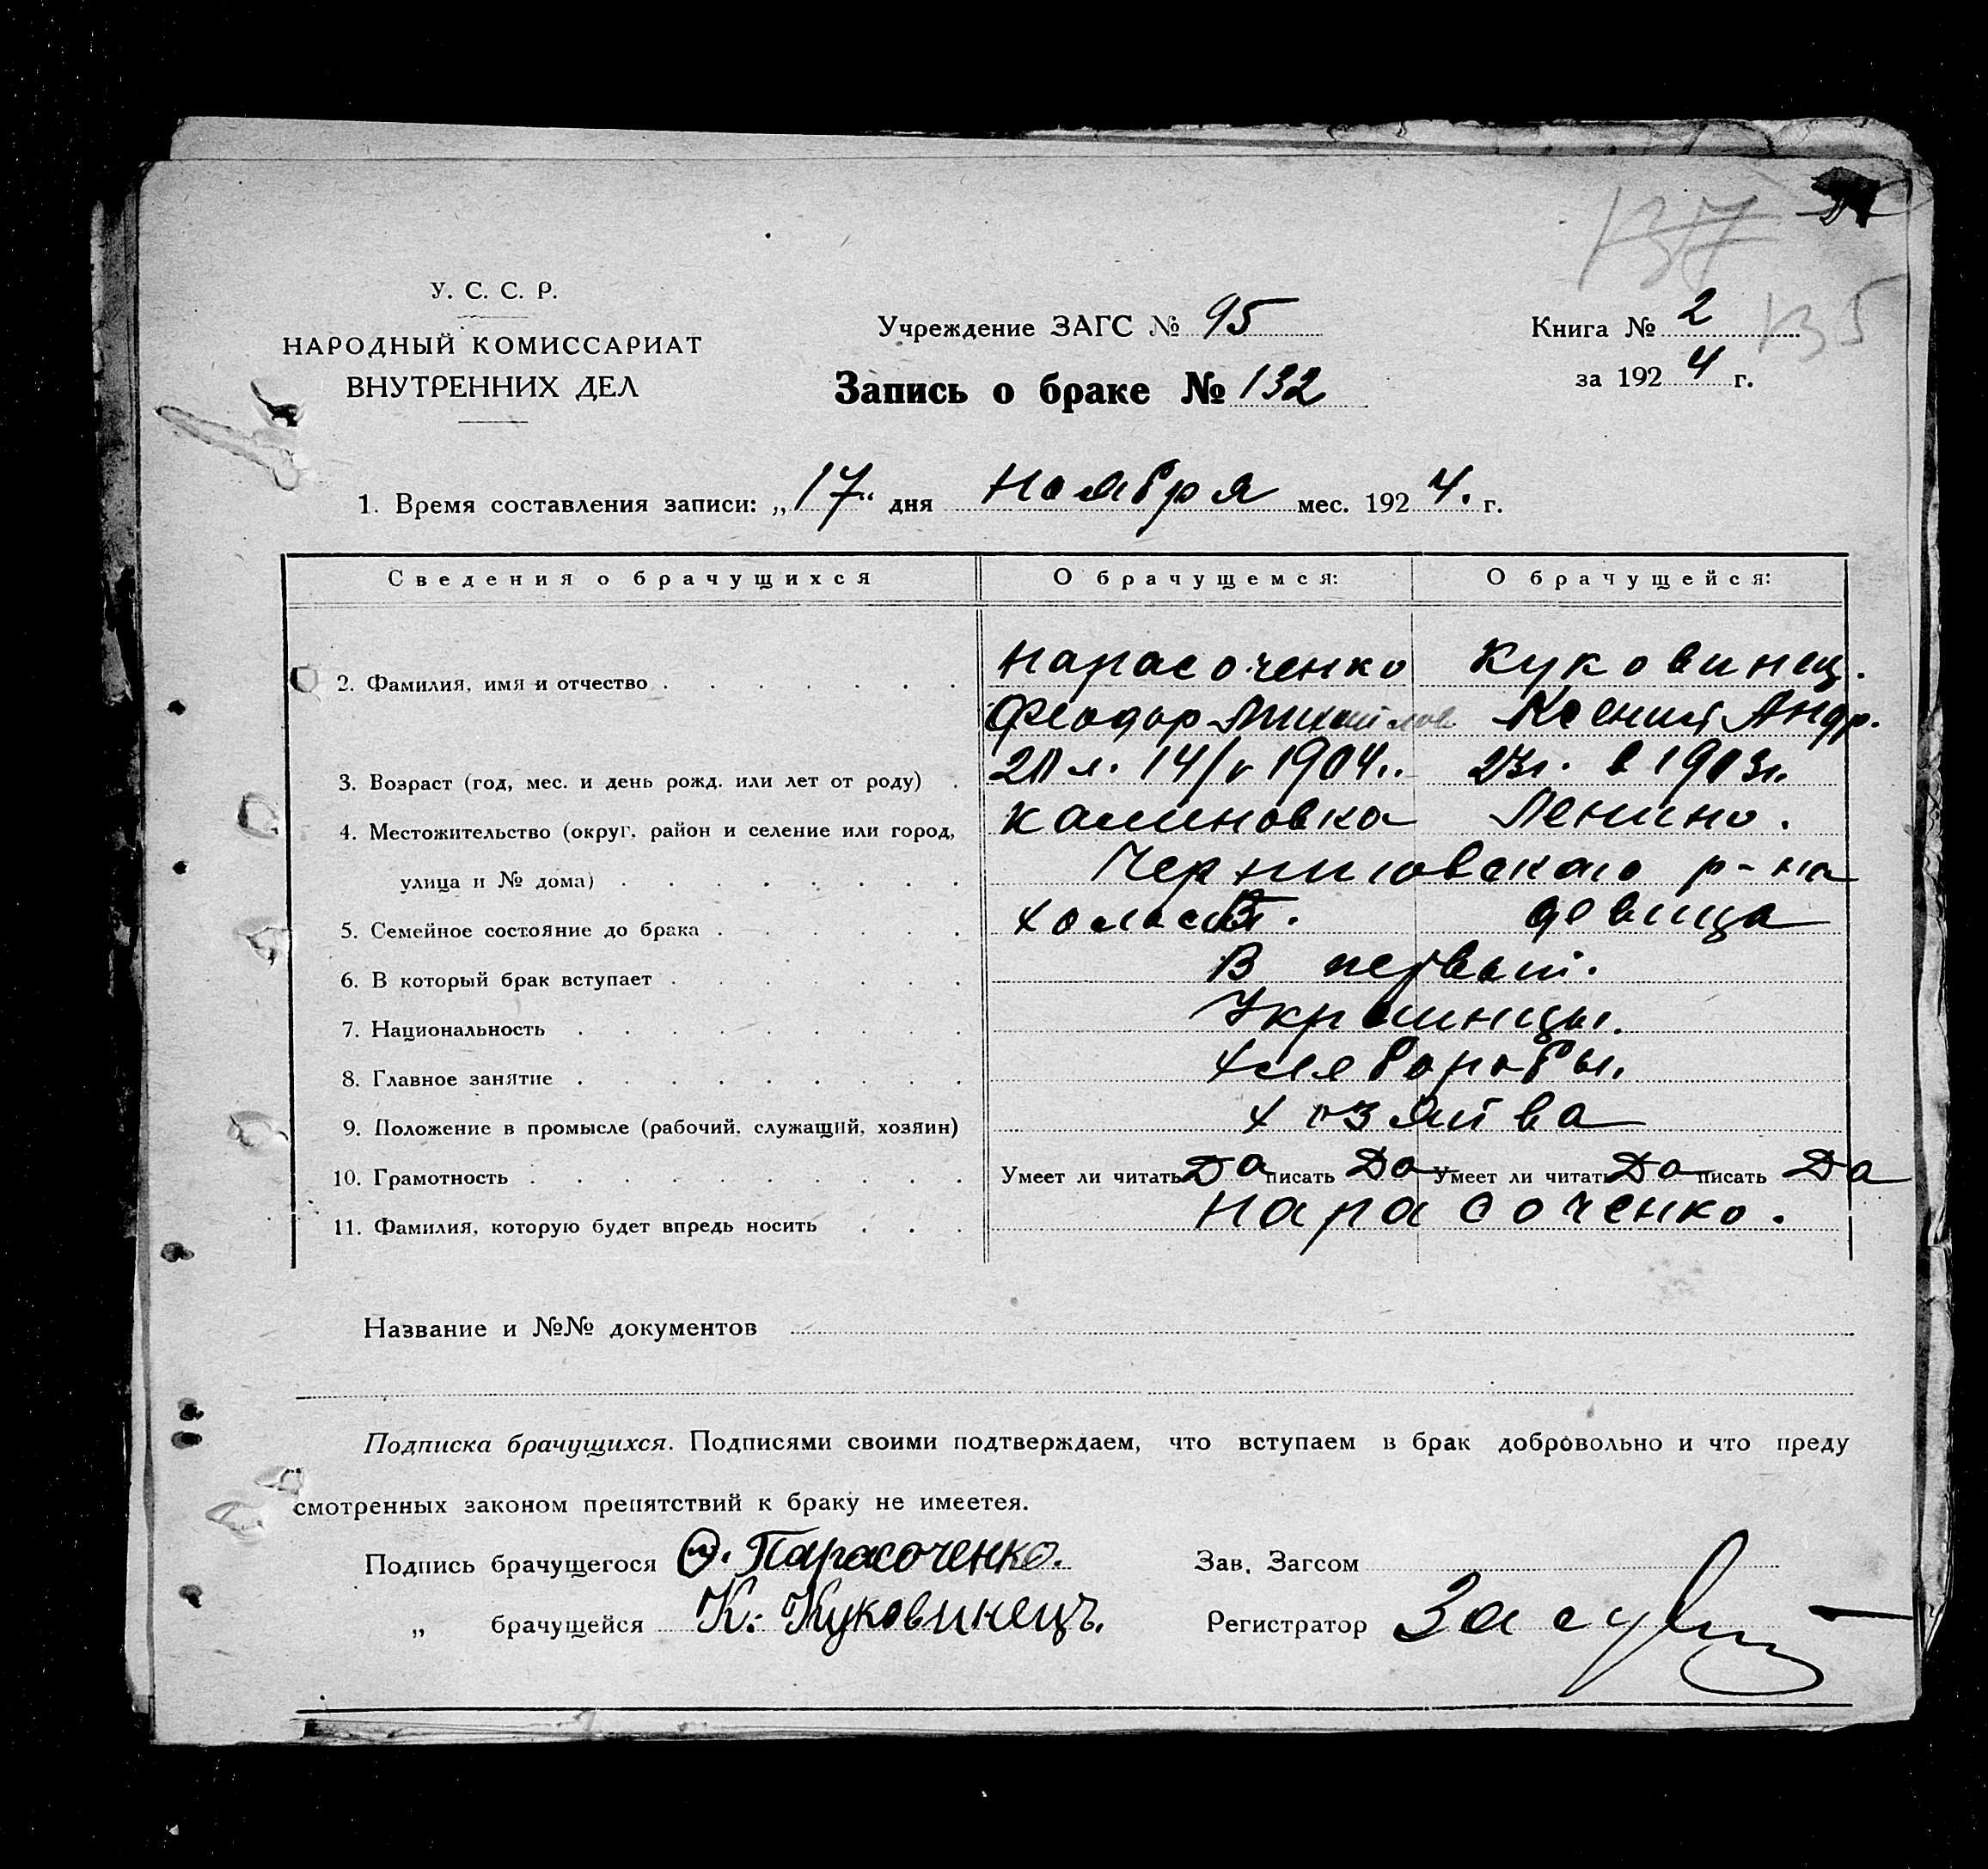 137
У. С. С. Р.
НАРОДНЫЙ КОМИССАРИАТ
ВНУТРЕННИХ ДЕЛ
Учреждение ЗАГС № 95
Запись о браке № 132
Книга № 2
135
за 1924 г.
1. Время составления записи: „17“ дня Ноября мес. 1924. г.
Сведения о брачущихся О брачущемся: О брачущейся:
2. Фамилия, имя и отчество Парасоченко Куковинец.
Феодор Михайлов Ксения Андр.
3. Возраст (год, мес. и день рожд. или лет от роду) 20 л. 14/V 1904г. в 1903г.
4. Местожительство (округ, район и селение или город, Калиновка Ленино.
улица и № дома) Черниговского р-на
5. Семейное состояние до брака холост. девица
6. В который брак вступает В первый.
7. Национальность Украинцы.
8. Главное занятие Хлеборобы.
9. Положение в промысле (рабочий, служащий, хозяин) хозяйва
10. Грамотность Умеет ли читать Да писать Да Умеет ли читать Да писать Да
11. Фамилия, которую будет впредь носить Парасоченко.
Название и №№ документов
Подписка брачущихся. Подписями своими подтверждаем, что вступаем в брак добровольно и что преду
смотренных законом препятствий к браку не имеетея.
Подпись брачущегося Ѳ. Парасоченко. Зав. Загсом
„ брачущейся К. Куковинецъ. Регистратор